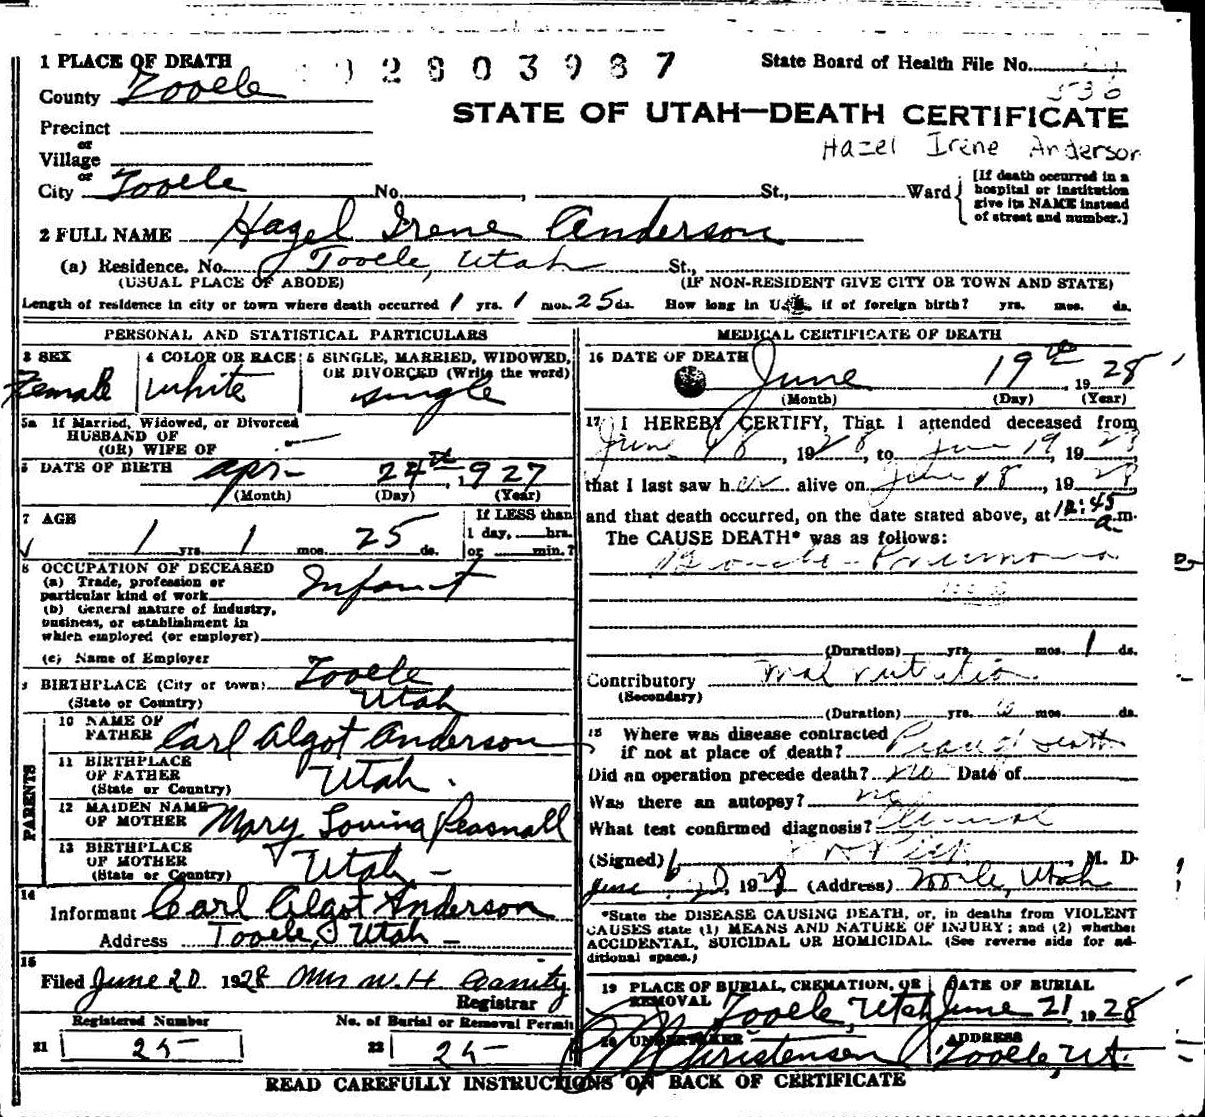 1 PLACE OF DEATH
2803987
State Board of Health File No.
536
County Tooele
STATE OF UTAH—DEATH CERTIFICATE
Precinct
or
Hazel Irene Anderson
Village
or
City Tooele No. , St., Ward
[If death occurred in a hospital or institution give its NAME instead of street and number.]
2 FULL NAME Hazel Irene Anderson
(a) Residence. No. Tooele, Utah St.,
(USUAL PLACE OF ABODE) (IF NON-RESIDENT GIVE CITY OR TOWN AND STATE)
Length of residence in city or town where death occurred 1 yrs. 1 mos. 25 ds. How long in U.S. if of foreign birth? yrs. mos. ds.
PERSONAL AND STATISTICAL PARTICULARS
3 SEX
Female
4 COLOR OR RACE
White
5 SINGLE, MARRIED, WIDOWED, OR DIVORCED (Write the word)
single
5a If Married, Widowed, or Divorced
HUSBAND OF
(OR) WIFE OF
6 DATE OF BIRTH Apr- 24th, 1927
(Month) (Day) (Year)
7 AGE
1 yrs. 1 mos. 25 ds.
If LESS than
1 day, hrs.
or min.?
8 OCCUPATION OF DECEASED
(a) Trade, profession or
particular kind of work Infant
(b) General nature of industry,
business, or establishment in
which employed (or employer)
(c) Name of Employer
9 BIRTHPLACE (City or town) Tooele
(State or Country) Utah
PARENTS
10 NAME OF
FATHER Carl Algot Anderson
11 BIRTHPLACE
OF FATHER Utah.
(State or Country)
12 MAIDEN NAME
OF MOTHER Mary Lovina
13 BIRTHPLACE
OF MOTHER Utah
(State or Country)
14
Informant Carl Algot Anderson
Address Tooele, Utah
15
Filed June 20 1928 Mrs W. H.
Registrar
Registered Number
No. of Burial or Removal Permit
21 25-
22 25-
MEDICAL CERTIFICATE OF DEATH
16 DATE OF DEATH June 19th, 1928
(Month) (Day) (Year)
17 I HEREBY CERTIFY, That I attended deceased from
June 18, 1928, to June 19, 1928
that I last saw her alive on June 18, 1928
and that death occurred, on the date stated above, at 12:45 a.m.
The CAUSE DEATH* was as follows:
Broncho-Pneumonia
(Duration) yrs. mos. 1 ds.
Contributory Mal nutrition
(Secondary)
(Duration) yrs. mos. ds.
18 Where was disease contracted
if not at place of death? Place of death
Did an operation precede death? no Date of
Was there an autopsy? no
What test confirmed diagnosis? Clinical
(Signed) , M. D.
June 20, 1928 (Address) Tooele, Utah
*State the DISEASE CAUSING DEATH, or, in deaths from VIOLENT
CAUSES state (1) MEANS AND NATURE OF INJURY; and (2) whether
ACCIDENTAL, SUICIDAL OR HOMICIDAL. (See reverse side for ad-
ditional space.)
19 PLACE OF BURIAL, CREMATION, OR
REMOVAL Tooele, Utah
DATE OF BURIAL
June 21, 1928
20 UNDERTAKER
Christensen
ADDRESS
Tooele, Ut.
READ CAREFULLY INSTRUCTIONS ON BACK OF CERTIFICATE